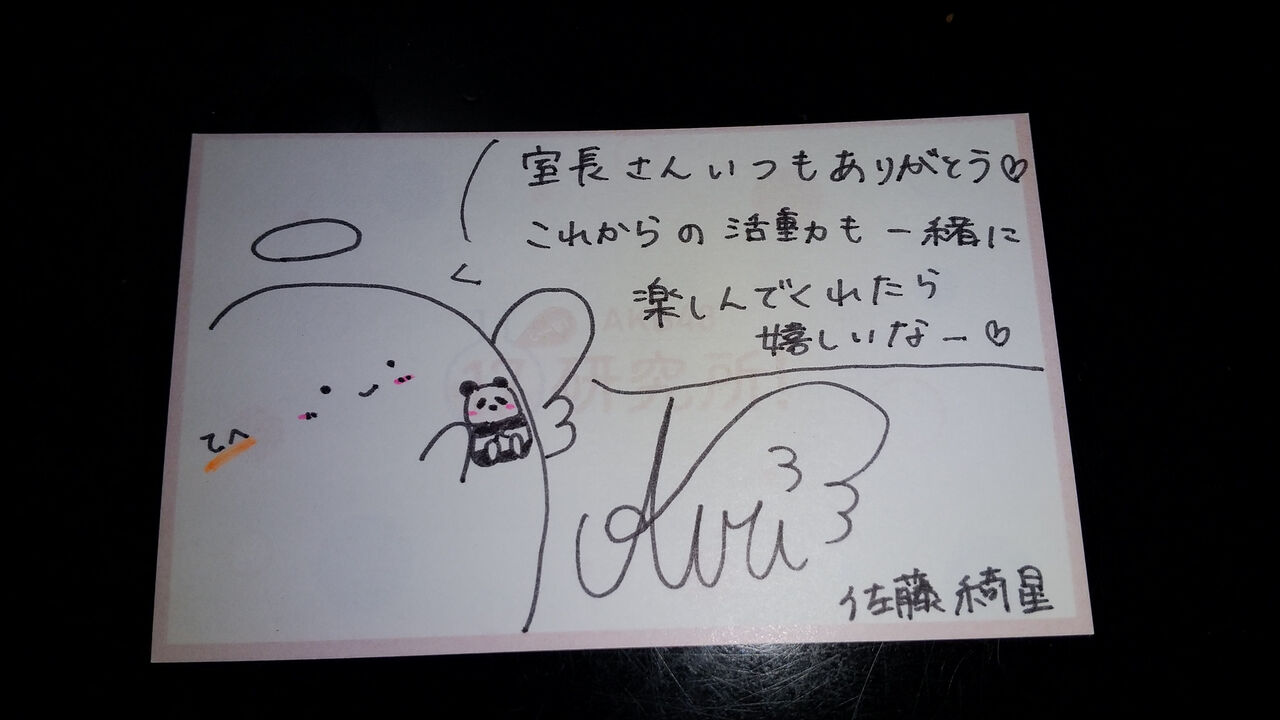 室長さんいつもありがとう♡
これからの活動も一緒に
楽しんでくれたら
嬉しいなー♡
AKB48
17研究所!
てへ
Airi
佐藤綺星